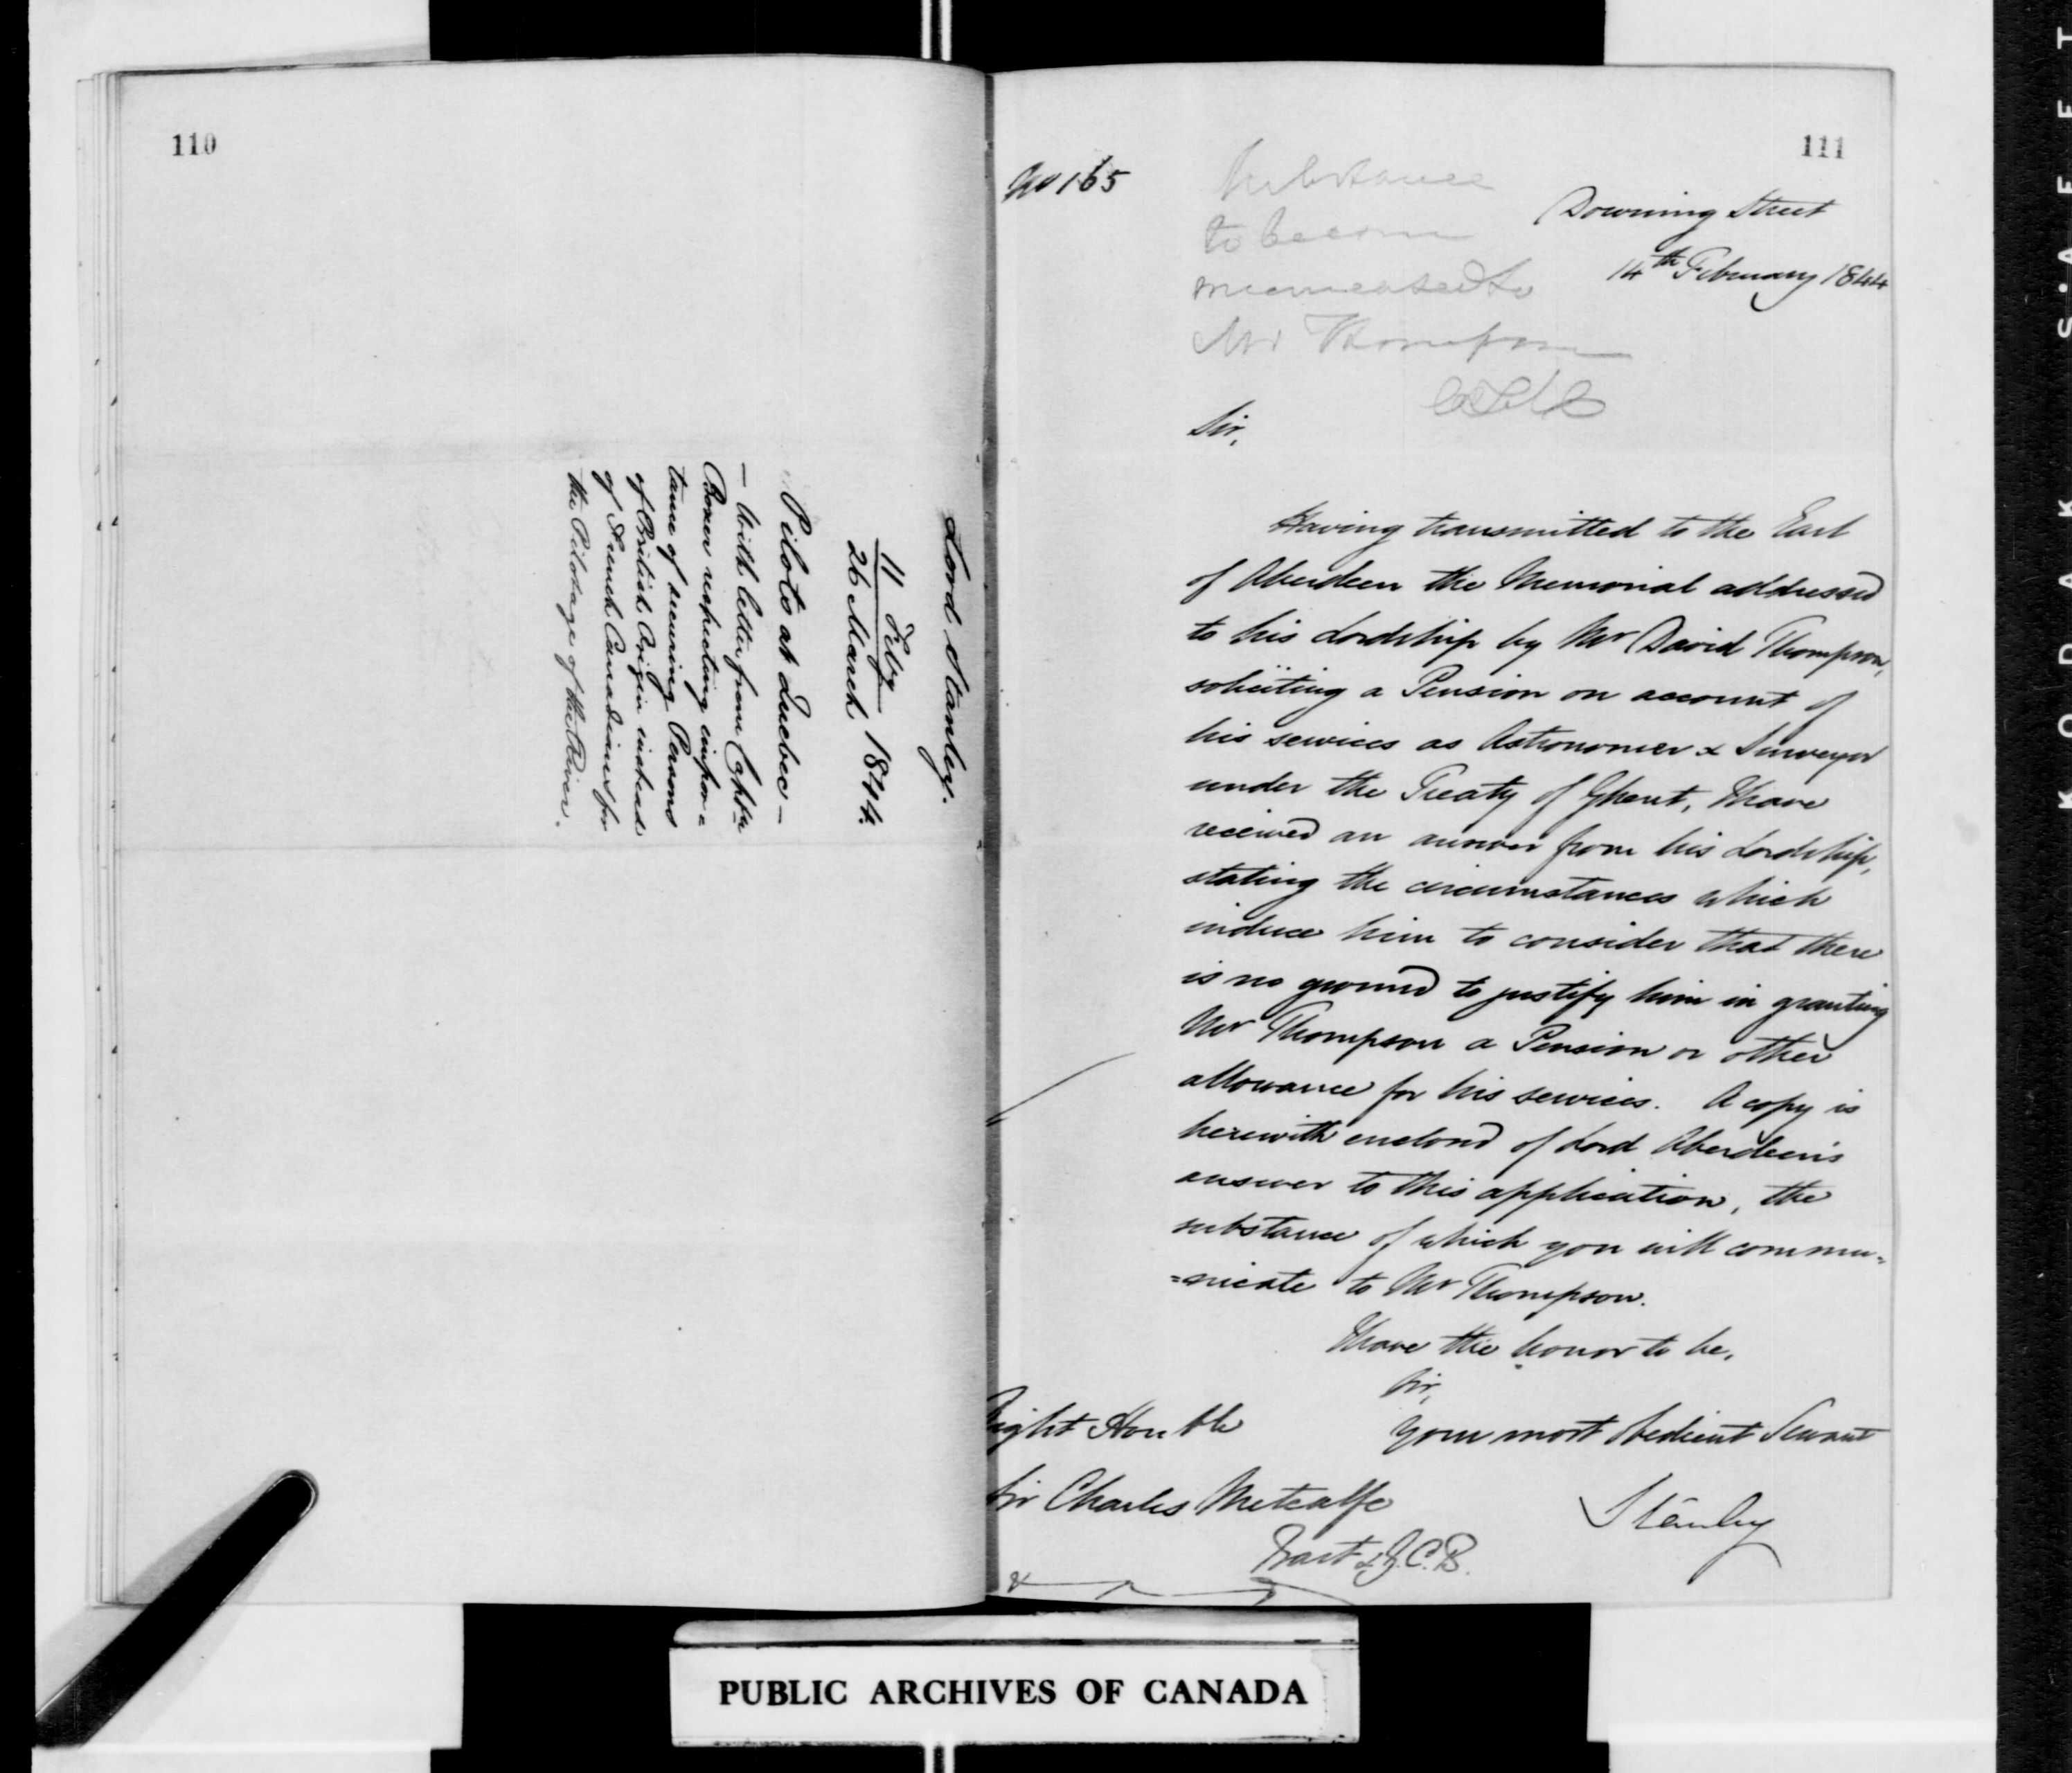 110
Lord Stanley.
11 Feby
26 March 1844.
Pilots at Quebec —
— With letter from Captn
Boxer respecting impor-
tance of securing Persons
of British Origin instead
of French Canadians for
the Pilotage of the River.
111
No 165
Substance
to be com
municated to
Mr Thompson
Downing Street
14th February 1844
Sir,
Having transmitted to the Earl
of Aberdeen the Memorial addressed
to his Lordship by Mr David Thompson,
soliciting a Pension on account of
his services as Astronomer & Surveyor
under the Treaty of Ghent, I have
received an answer from his Lordship,
stating the circumstances which
induce him to consider that there
is no ground to justify him in granting
Mr Thompson a Pension or other
allowance for his services. A copy is
herewith enclosed of Lord Aberdeen's
answer to this application, the
substance of which you will commu=
=nicate to Mr Thompson.
I have the honor to be,
Sir,
Your most obedient Servant
Stanley
Right Honble
Sir Charles Metcalfe
Bart & G.C.B.
PUBLIC ARCHIVES OF CANADA
KODAK S·AFET